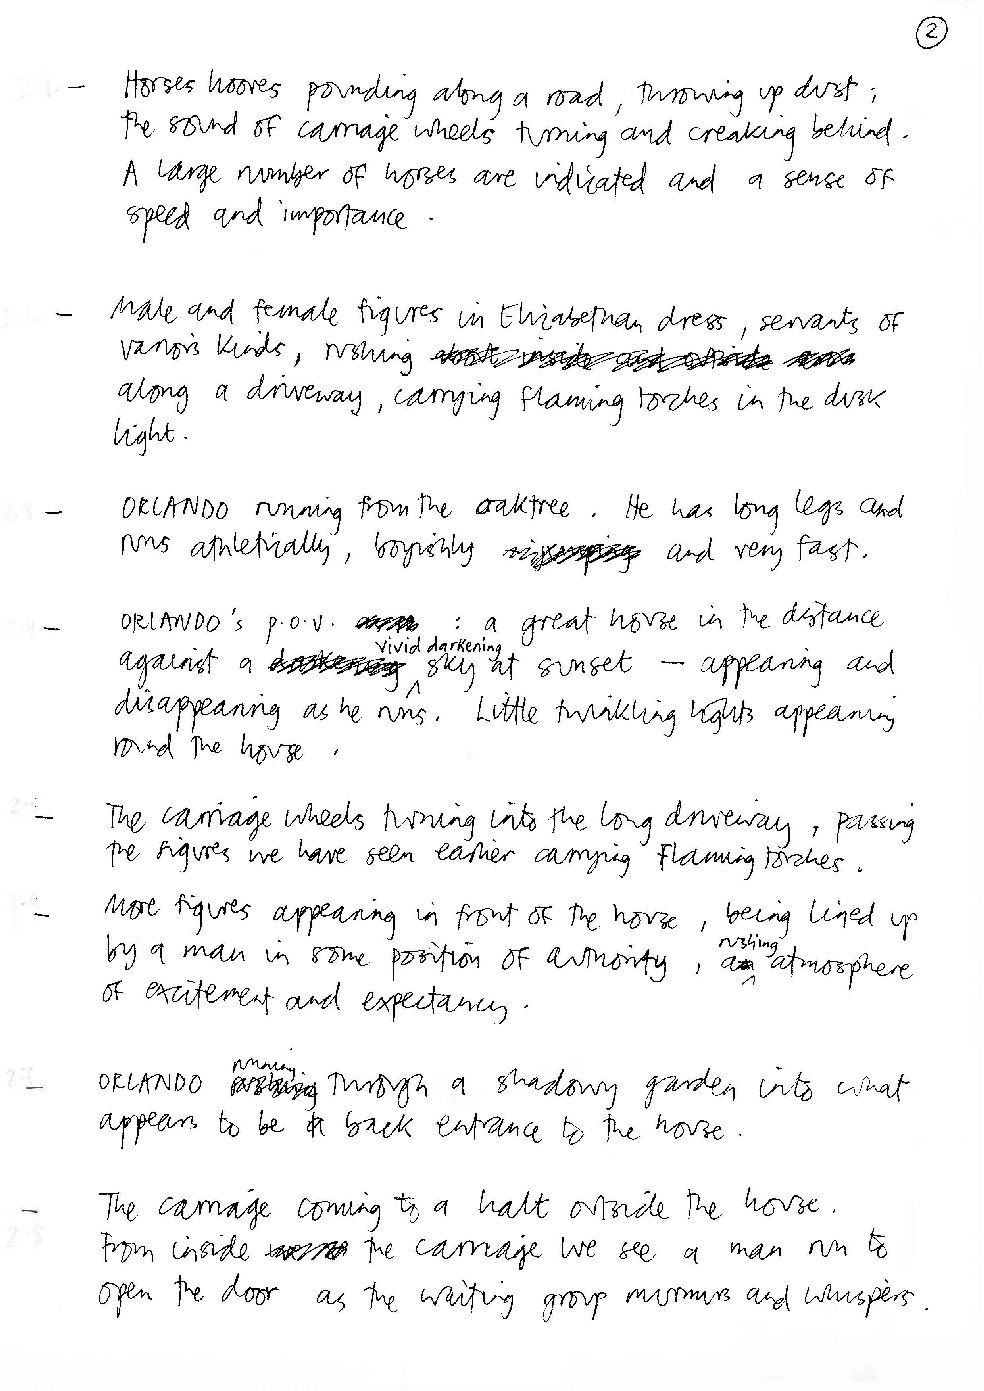 2
- Horses hooves pounding along a road, throwing up dust;
the sound of carriage wheels turning and creaking behind.
A large number of horses are indicated and a sense of
speed and importance.
- Male and female figures in Elizabethan dress, servants of
various kinds, rushing
along a driveway, carrying flaming torches in the dusk
light.
2.3 - ORLANDO running from the oaktree. He has long legs and
runs athletically, boyishly and very fast.
2.4 - ORLANDO's p.o.v. : a great house in the distance
against a vivid darkening sky at sunset — appearing and
disappearing as he runs. Little twinkling lights appearing
round the house.
- The carriage wheels turning into the long driveway, passing
the figures we have seen earlier carrying flaming torches.
- More figures appearing in front of the house, being lined up
by a man in some position of authority, a rushing atmosphere
of excitement and expectancy.
2.7 - ORLANDO running through a shadowy garden into what
appears to be a back entrance to the house.
- The carriage coming to a halt outside the house.
2.8 From inside the carriage we see a man run to
open the door as the waiting group murmurs and whispers.